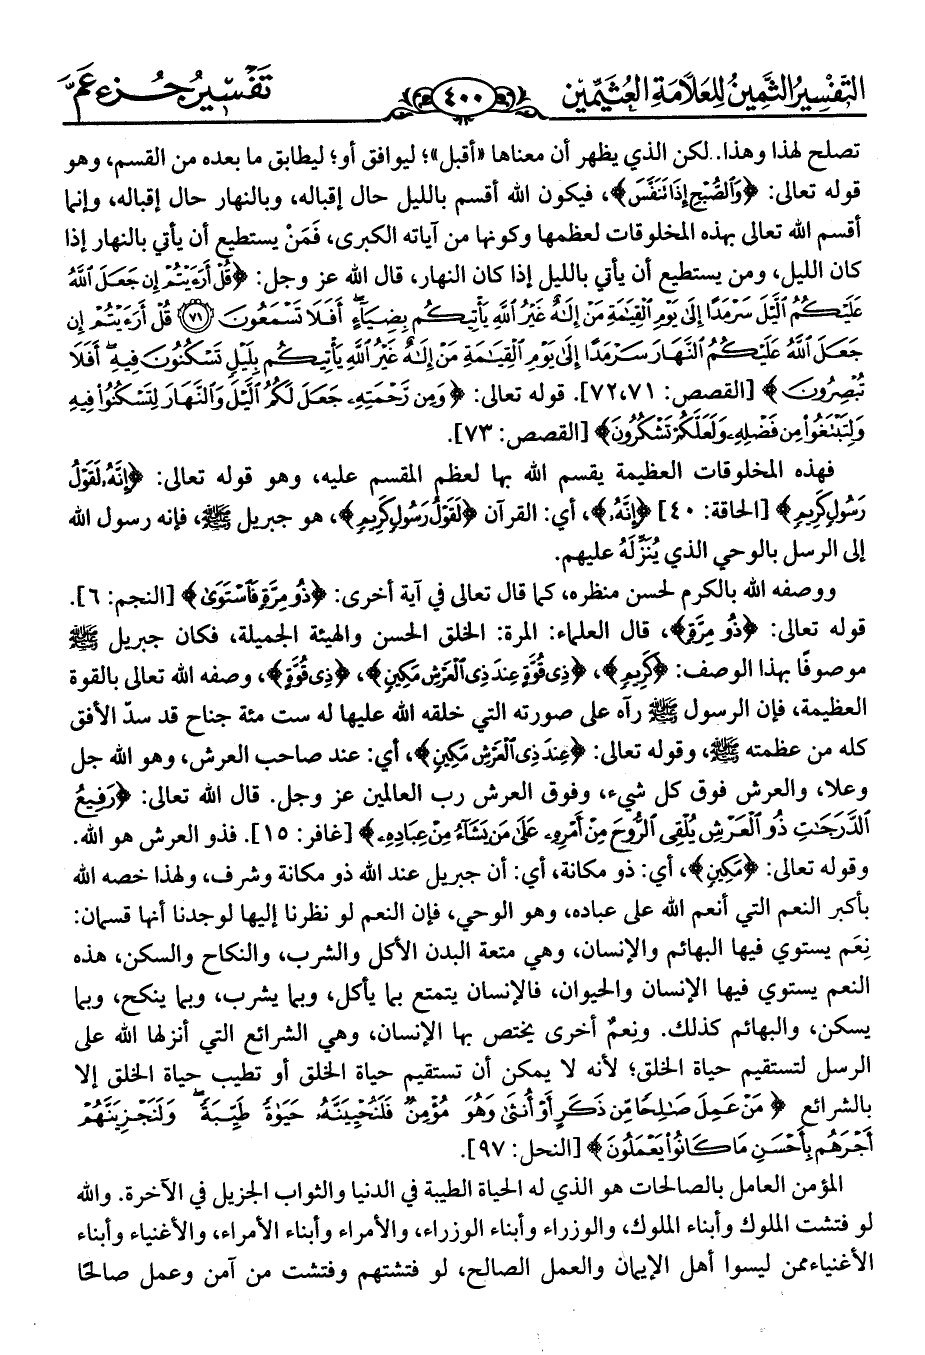 التفسير الثمين للعلامة العثيمين ٤٠٠ تفسير جزء عم
تصلح لهذا وهذا..لكن الذي يظهر أن معناها «أقبل»؛ ليوافق أو؛ ليطابق ما بعده من القسم، وهو
قوله تعالى: ﴿وَٱلصُّبۡحِ إِذَا تَنَفَّسَ﴾، فيكون الله أقسم بالليل حال إقباله، وبالنهار حال إقباله، وإنما
أقسم الله تعالى بهذه المخلوقات لعظمها وكونها من آياته الكبرى، فَمَنْ يستطيع أن يأتي بالنهار إذا
كان الليل، ومن يستطيع أن يأتي بالليل إذا كان النهار، قال الله عز وجل: ﴿قُلۡ أَرَءَيۡتُمۡ إِن جَعَلَ ٱللَّهُ
عَلَيۡكُمُ ٱلَّيۡلَ سَرۡمَدًا إِلَىٰ يَوۡمِ ٱلۡقِيَٰمَةِ مَنۡ إِلَٰهٌ غَيۡرُ ٱللَّهِ يَأۡتِيكُم بِضِيَآءٍۖ أَفَلَا تَسۡمَعُونَ ٧١ قُلۡ أَرَءَيۡتُمۡ إِن
جَعَلَ ٱللَّهُ عَلَيۡكُمُ ٱلنَّهَارَ سَرۡمَدًا إِلَىٰ يَوۡمِ ٱلۡقِيَٰمَةِ مَنۡ إِلَٰهٌ غَيۡرُ ٱللَّهِ يَأۡتِيكُم بِلَيۡلٖ تَسۡكُنُونَ فِيهِۖ أَفَلَا
تُبۡصِرُونَ﴾ [القصص: ٧١، ٧٢]. قوله تعالى: ﴿وَمِن رَّحۡمَتِهِۦ جَعَلَ لَكُمُ ٱلَّيۡلَ وَٱلنَّهَارَ لِتَسۡكُنُواْ فِيهِ
وَلِتَبۡتَغُواْ مِن فَضۡلِهِۦ وَلَعَلَّكُمۡ تَشۡكُرُونَ﴾ [القصص: ٧٣].
فهذه المخلوقات العظيمة يقسم الله بها لعظم المقسم عليه، وهو قوله تعالى: ﴿إِنَّهُۥ لَقَوۡلُ
رَسُولٖ كَرِيمٖ﴾ [الحاقة: ٤٠] ﴿إِنَّهُۥ﴾، أي: القرآن ﴿لَقَوۡلُ رَسُولٖ كَرِيمٖ﴾، هو جبريل ﷺ، فإنه رسول الله
إلى الرسل بالوحي الذي يُنَزِّلُهُ عليهم.
ووصفه الله بالكرم لحسن منظره، كما قال تعالى في آية أخرى: ﴿ذُو مِرَّةٖ فَٱسۡتَوَىٰ﴾ [النجم: ٦].
قوله تعالى: ﴿ذُو مِرَّةٖ﴾، قال العلماء: المرة: الخلق الحسن والهيئة الجميلة، فكان جبريل ﷺ
موصوفًا بهذا الوصف: ﴿كَرِيمٖ﴾، ﴿ذِي قُوَّةٍ عِندَ ذِي ٱلۡعَرۡشِ مَكِينٖ﴾، ﴿ذِي قُوَّةٍ﴾، وصفه الله تعالى بالقوة
العظيمة، فإن الرسول ﷺ رآه على صورته التي خلقه الله عليها له ست مئة جناح قد سدّ الأفق
كله من عظمته ﷺ، وقوله تعالى: ﴿عِندَ ذِي ٱلۡعَرۡشِ مَكِينٖ﴾، أي: عند صاحب العرش، وهو الله جل
وعلا، والعرش فوق كل شيء، وفوق العرش رب العالمين عز وجل. قال الله تعالى: ﴿رَفِيعُ
ٱلدَّرَجَٰتِ ذُو ٱلۡعَرۡشِ يُلۡقِي ٱلرُّوحَ مِنۡ أَمۡرِهِۦ عَلَىٰ مَن يَشَآءُ مِنۡ عِبَادِهِۦ﴾ [غافر: ١٥]. فذو العرش هو الله.
وقوله تعالى: ﴿مَكِينٖ﴾، أي: ذو مكانة، أي: أن جبريل عند الله ذو مكانة وشرف، ولهذا خصه الله
بأكبر النعم التي أنعم الله على عباده، وهو الوحي، فإن النعم لو نظرنا إليها لوجدنا أنها قسمان:
نِعَم يستوي فيها البهائم والإنسان، وهي متعة البدن الأكل والشرب، والنكاح والسكن، هذه
النعم يستوي فيها الإنسان والحيوان، فالإنسان يتمتع بما يأكل، وبما يشرب، وبما ينكح، وبما
يسكن، والبهائم كذلك. ونِعمٌ أخرى يختص بها الإنسان، وهي الشرائع التي أنزلها الله على
الرسل لتستقيم حياة الخلق؛ لأنه لا يمكن أن تستقيم حياة الخلق أو تطيب حياة الخلق إلا
بالشرائع ﴿مَنۡ عَمِلَ صَٰلِحٗا مِّن ذَكَرٍ أَوۡ أُنثَىٰ وَهُوَ مُؤۡمِنٞ فَلَنُحۡيِيَنَّهُۥ حَيَوٰةٗ طَيِّبَةٗۖ وَلَنَجۡزِيَنَّهُمۡ
أَجۡرَهُم بِأَحۡسَنِ مَا كَانُواْ يَعۡمَلُونَ﴾ [النحل: ٩٧].
المؤمن العامل بالصالحات هو الذي له الحياة الطيبة في الدنيا والثواب الجزيل في الآخرة. والله
لو فتشت الملوك وأبناء الملوك، والوزراء وأبناء الوزراء، والأمراء وأبناء الأمراء، والأغنياء وأبناء
الأغنياءممن ليسوا أهل الإيمان والعمل الصالح، لو فتشتهم وفتشت من آمن وعمل صالحًا